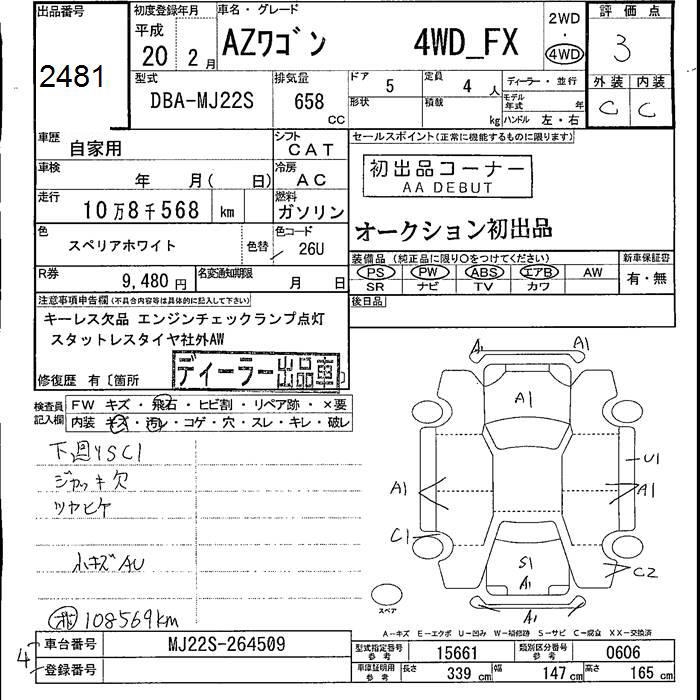 出品番号
2481
初度登録年月
平成
20年 2月
車名・グレード
AZワゴン 4WD_FX
2WD
・
4WD
評価点
3
型式
DBA-MJ22S
排気量
658
CC
ドア
5
定員
4人
ディーラー・並行
形状
積載
kg
モデル年式
年
ハンドル 左・右
外装 内装
C C
車歴
自家用
シフト
CAT
車検
年 月( 日)
冷房
AC
走行
10万8千568 km
燃料
ガソリン
色
スペリアホワイト
色替
色コード
26U
R券
9,480円
名変通知期限
月 日
セールスポイント(正常に機能するものに限ります)
初出品コーナー
AA DEBUT
オークション初出品
装備品(純正品に限り○をつけてください)
新車保証書
PS PW ABS エアB AW
SR ナビ TV カワ
有・無
後日品
注意事項申告欄(不具合内容等は具体的に記入して下さい)
キーレス欠品 エンジンチェックランプ点灯
スタットレスタイヤ社外AW
ディーラー出品車
修復歴 有〔箇所 〕
検査員記入欄
FW キズ・飛石・ヒビ割・リペア跡・×要
内装 キズ・汚レ・コゲ・穴・スレ・キレ・破レ
下回りSC1
ジャッキ欠
ツヤヒケ
小キズAU
108569km
A1 A1
A1
U1
A1 A1
C1
S1
A1
C2
A1
スペア
A-キズ E-エクボ U-凹み W-補修跡 S-サビ C-腐食 XX-交換済
4
車台番号
MJ22S-264509
登録番号
型式指定番号
参考
15661
類別区分番号
参考
0606
車庫証明用
参考
長さ
339 cm
幅
147 cm
高さ
165 cm